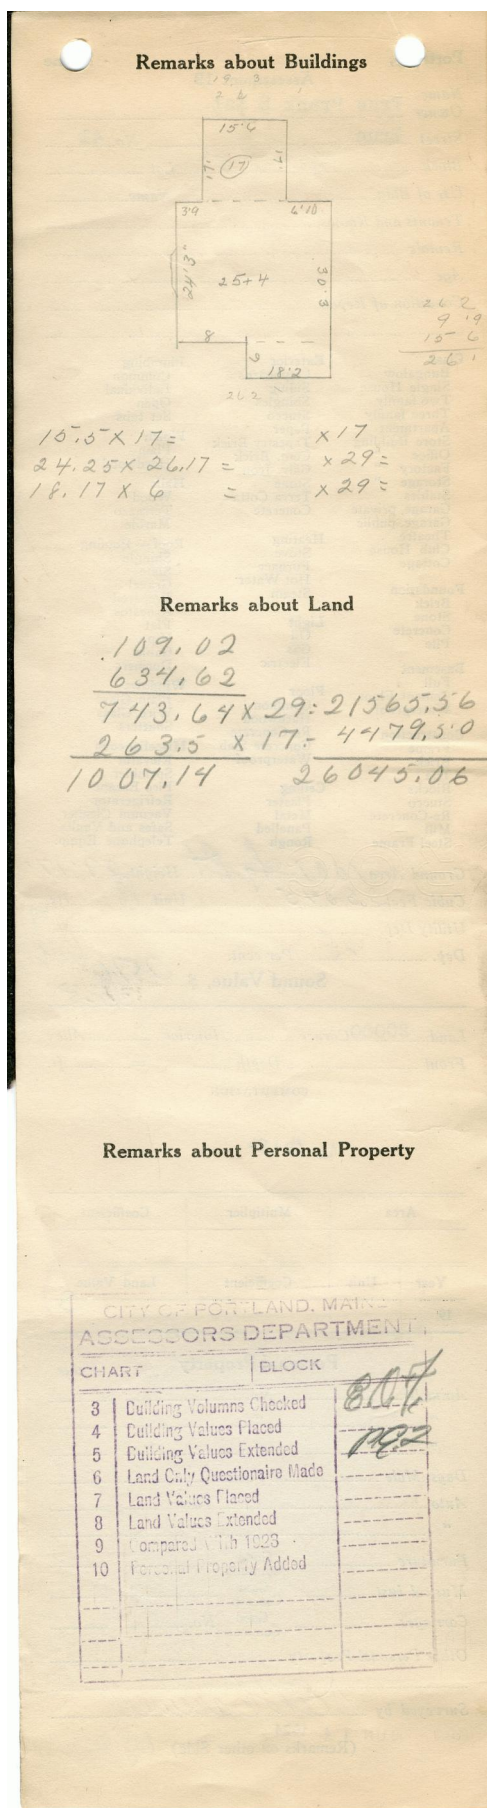 Remarks about Buildings
19 3
2 2 1
15'6
17' (17) 17'
3'9 6'10
24'3"
25+4
30'3
26 2
9 '9
15 6
26 1
8
6
18'2
26 2
15.5 X 17 = X 17
24.25 X 26.17 = X 29 =
18.17 X 6 = X 29 =
Remarks about Land
109.02
634.62
743.64 X 29 = 21565.56
263.5 X 17 = 4479.50
1007.14 26045.06
Remarks about Personal Property
CITY OF PORTLAND, MAINE
ASSESSORS DEPARTMENT
CHART BLOCK
3 Building Volumns Checked
4 Building Values Placed
5 Building Values Extended
6 Land Only Questionaire Made
7 Land Values Placed
8 Land Values Extended
9 Compared With 1923
10 Personal Property Added